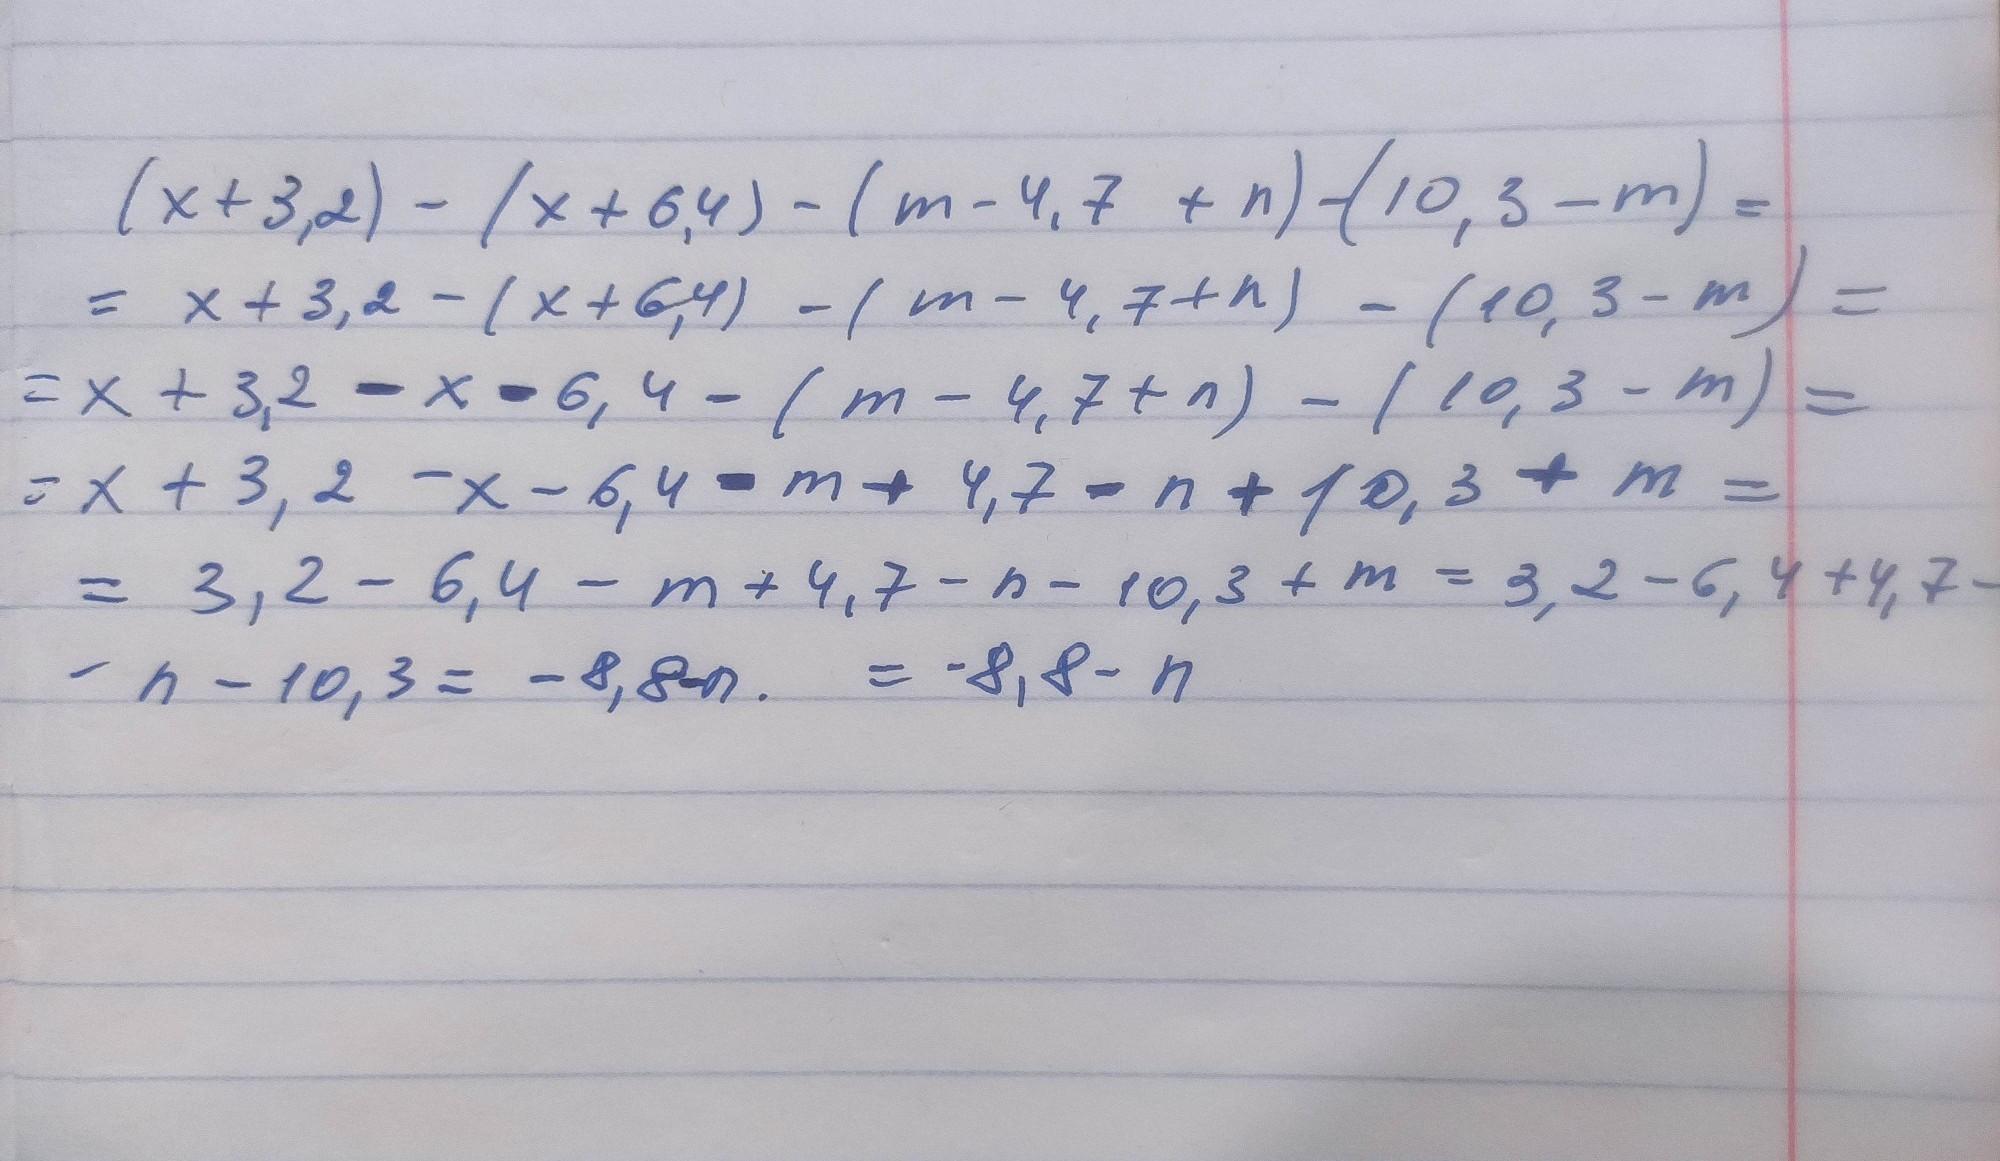 (x+3,2) - (x+6,4) - (m-4,7 +n)-(10,3-m)=
= x+3,2-(x+6,4) -(m-4,7+n) -(10,3-m)=
=x+3,2-x-6,4-(m-4,7+n)-(10,3-m)=
=x+3,2-x-6,4-m+4,7-n+10,3+m=
= 3,2-6,4-m+4,7-n-10,3+m=3,2-6,4+4,7-
-n-10,3= -8,8-n. = -8,8-n